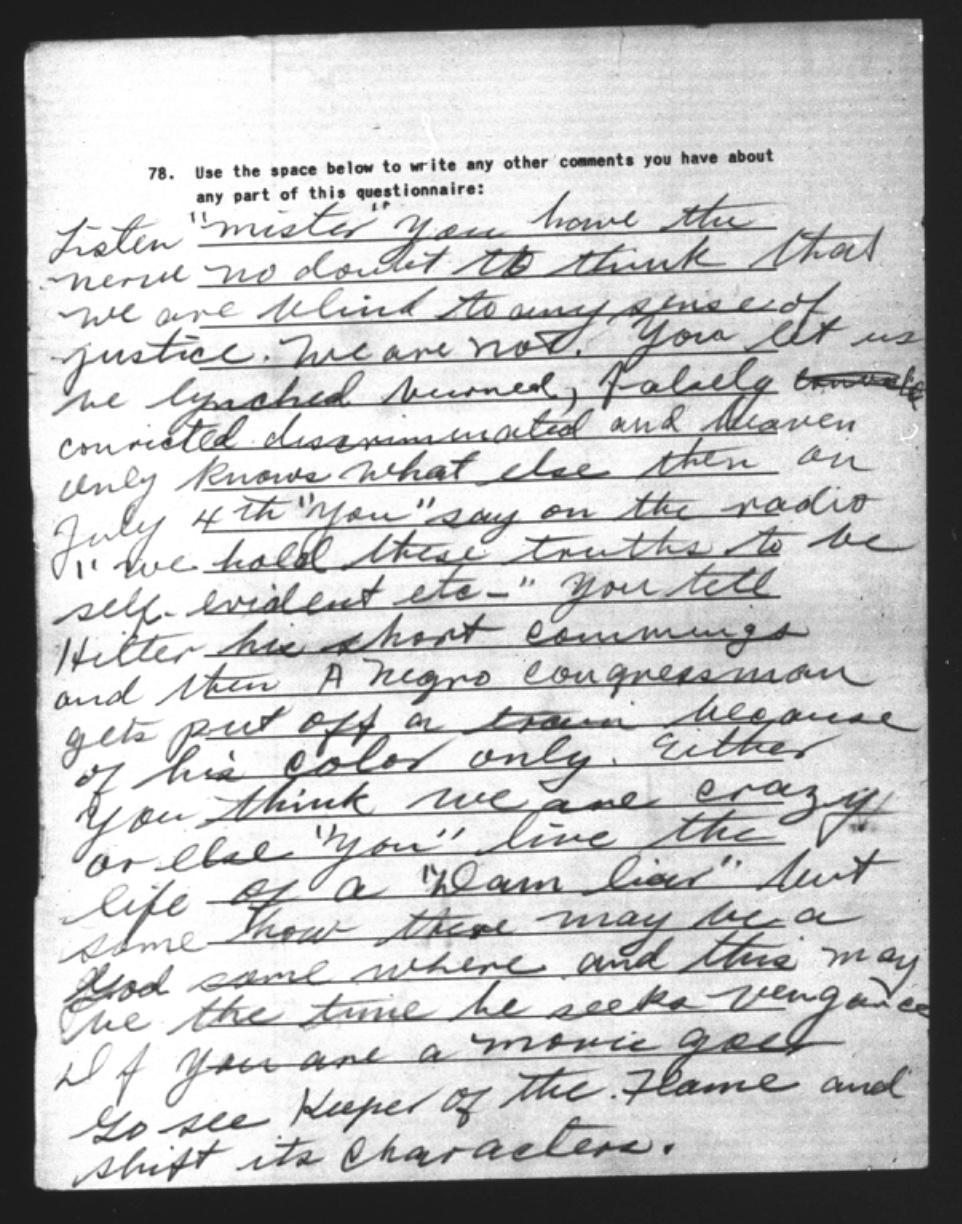 78. Use the space below to write any other comments you have about
any part of this questionnaire:
Listen "mister" you have the
nerve no doubt to think that
we are blind to any sense of
justice. We are not. You let us
be lynched burned, falsely
convicted discriminated and heaven
only knows what else then on
July 4th "you" say on the radio
"we hold these truths to be
self-evident etc-" You tell
Hitler his short commings
and then A Negro congressman
gets put off a train because
of his color only. Either
you think we are crazy
or else "you" live the
life of a "Dam liar" but
some how there may be a
God some where and this may
be the time he seeks vengance
If you are a movie goer
go see Keeper of the Flame and
shift its characters.